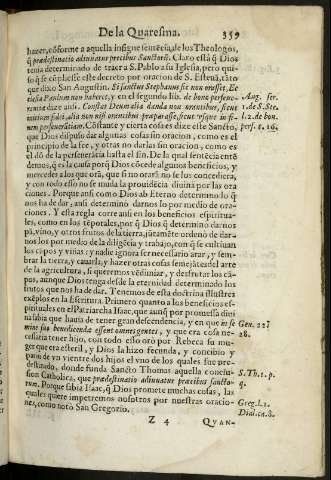 De la Quaresma. 359
hazer, cõforme a aquella insigne sentẽcia, de los Theologos,
q̃ prædestinatio adiuuatur precibus Sanctorũ. Claro està q̃ Dios
tenia determinado de traer a S. Pablo a su Iglesia, pero qui-
so q̃ se cũpliesse este decreto por oracion de S. Esteuã, tãto
que dixo San Augustin. Si sanctus Stephanus sic non orasset, Ec
clesia Paulum non haberet, y en el segundo lib. de bono perseue-
rantiæ dize assi. Constat Deum alia danda non orantibus, sicut
initium fidei, alia non nisi orantibus præparasse, sicut vsque in fi-
nem perseuerãtiam. Cõstante y cierta cosa es dize este Sancto,
que Dios dispuso dar algunas cosas sin oracion, como es el
principio de la fee, y otras no darlas sin oracion, como es el
dõ de la perseuerãcia hasta el fin. De la qual sentẽcia entẽ
demos, q̃ es la causa porq̃ Dios cõcede algunos beneficios, y
mercedes a los que orã, que si no orarã no se los concediera,
y con todo esso no se muda la prouidẽcia diuina por las ora
ciones. Porque ansi como Dios ab Eterno determinado lo q̃
nos ha de dar, ansi determino darnos lo por medio de ora-
ciones. Y esta regla corre ansi en los beneficios espiritua-
les, como en los tẽporales, por q̃ Dios q̃ determino darnos
pã, vino, y otros frutos de la tierra, jũtamẽte ordeno de dar-
nos los por medio de la diligẽcia y trabajo, con q̃ se cultiuan
los cãpos y viñas: y nadie ignora ser necessario arar, y sem-
brar la tierra, y cauarla, y hazer otras cosas semejãtes del arte
de la agricultura, si queremos vẽdimiar, y desfrutar los cã-
pos, aunque Dios tenga desde la eternidad determinado los
frutos que nos ha de dar. Tenemos de esta doctrina illustres
exẽplos en la Escritura Primero quanto a los beneficios es-
pirituales en el Patriarcha Isaac, que aunq̃ por promessa diui
na sabia que hauia de tener gran descendencia, y en que in se
mine suo benedicenda essent omnes gentes, y que era cosa ne-
cessaria tener hijo, con todo esso orò por Rebeca su mu-
ger era esteril, y Dios la hizo fecunda, y concibio y
pario de vn vientre dos hijos el vno de los quales fue pre-
destinado, donde funda Sancto Thomas aquella conclu-
sion Catholica, que prædestinatio adiuuatur precibus sancto-
rum. Porque sabia Isaac, q̃ Dios promete muchas cosas, las
quales quiere impetremos nosotros por nuestras oracio-
nes, como notò San Gregorio.
Z 4 QVAN-
Aug. ser.
1. de S. Ste.
l. 2. de bon.
pers. c. 16.
Gen. 22.
28.
S. Th. 1. p.
q.
Greg. l. 1.
Dial. ca. 8.